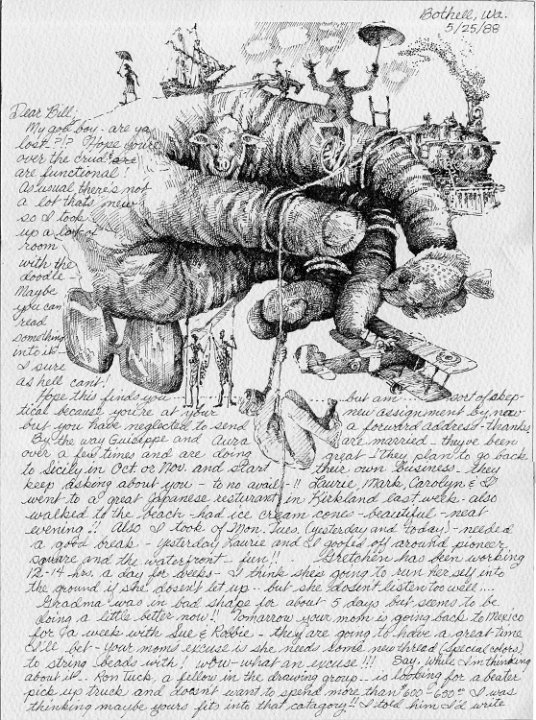 Bothell, Wa.
5/25/88
Dear Bill:
My god boy - are ya
lost?!? Hope you're
over the crud & are
are functional!
As usual there's not
a lot that's new
so I took
up a lot of
room
with the
doodle -
Maybe
you can
read
something
into it -
I sure
as hell cant!
Hope this finds you ........ but am .... sort of skep-
tical because you're at your new assignment by now
but you have neglected to send a forward address - thanks
By the way Guiseppe and Aura are married - they've been
over a few times and are doing great - they plan to go back
to Sicily in Oct. or Nov. and start their own business - they
keep asking about you - to no avail - !! Laurie, Mark, Carolyn & I
went to a great Japanese resturant in Kirkland last week - also
walked to the beach - had ice cream cones - beautiful - neat
evening!! Also I took of Mon. Tues. (yesterday and today) - needed
a good break - yesterday Laurie and I goofed off around pioneer
square and the waterfront - fun!! Gretchen has been working
12-14 hrs. a day for weeks - I think she's going to run her self into
the ground if she dosen't let up .. but she dosen't listen too well ....
Gradma was in bad shape for about 5 days but seems to be
doing a little better now!! Tomorrow your mom is going back to Mexico
for a week with Sue & Robbie - they are going to have a great time
I'll bet - your moms excuse is she needs some new thread (special colors)
to string beads with! wow - what an excuse!!! Say, while I'm thinking
about it - Ron Tuck, a fellow in the drawing group - is looking for a beater
pick up truck and doesn't want to spend more than $500-600 - I was
thinking maybe yours fits into that catagory!! I told him I'd write